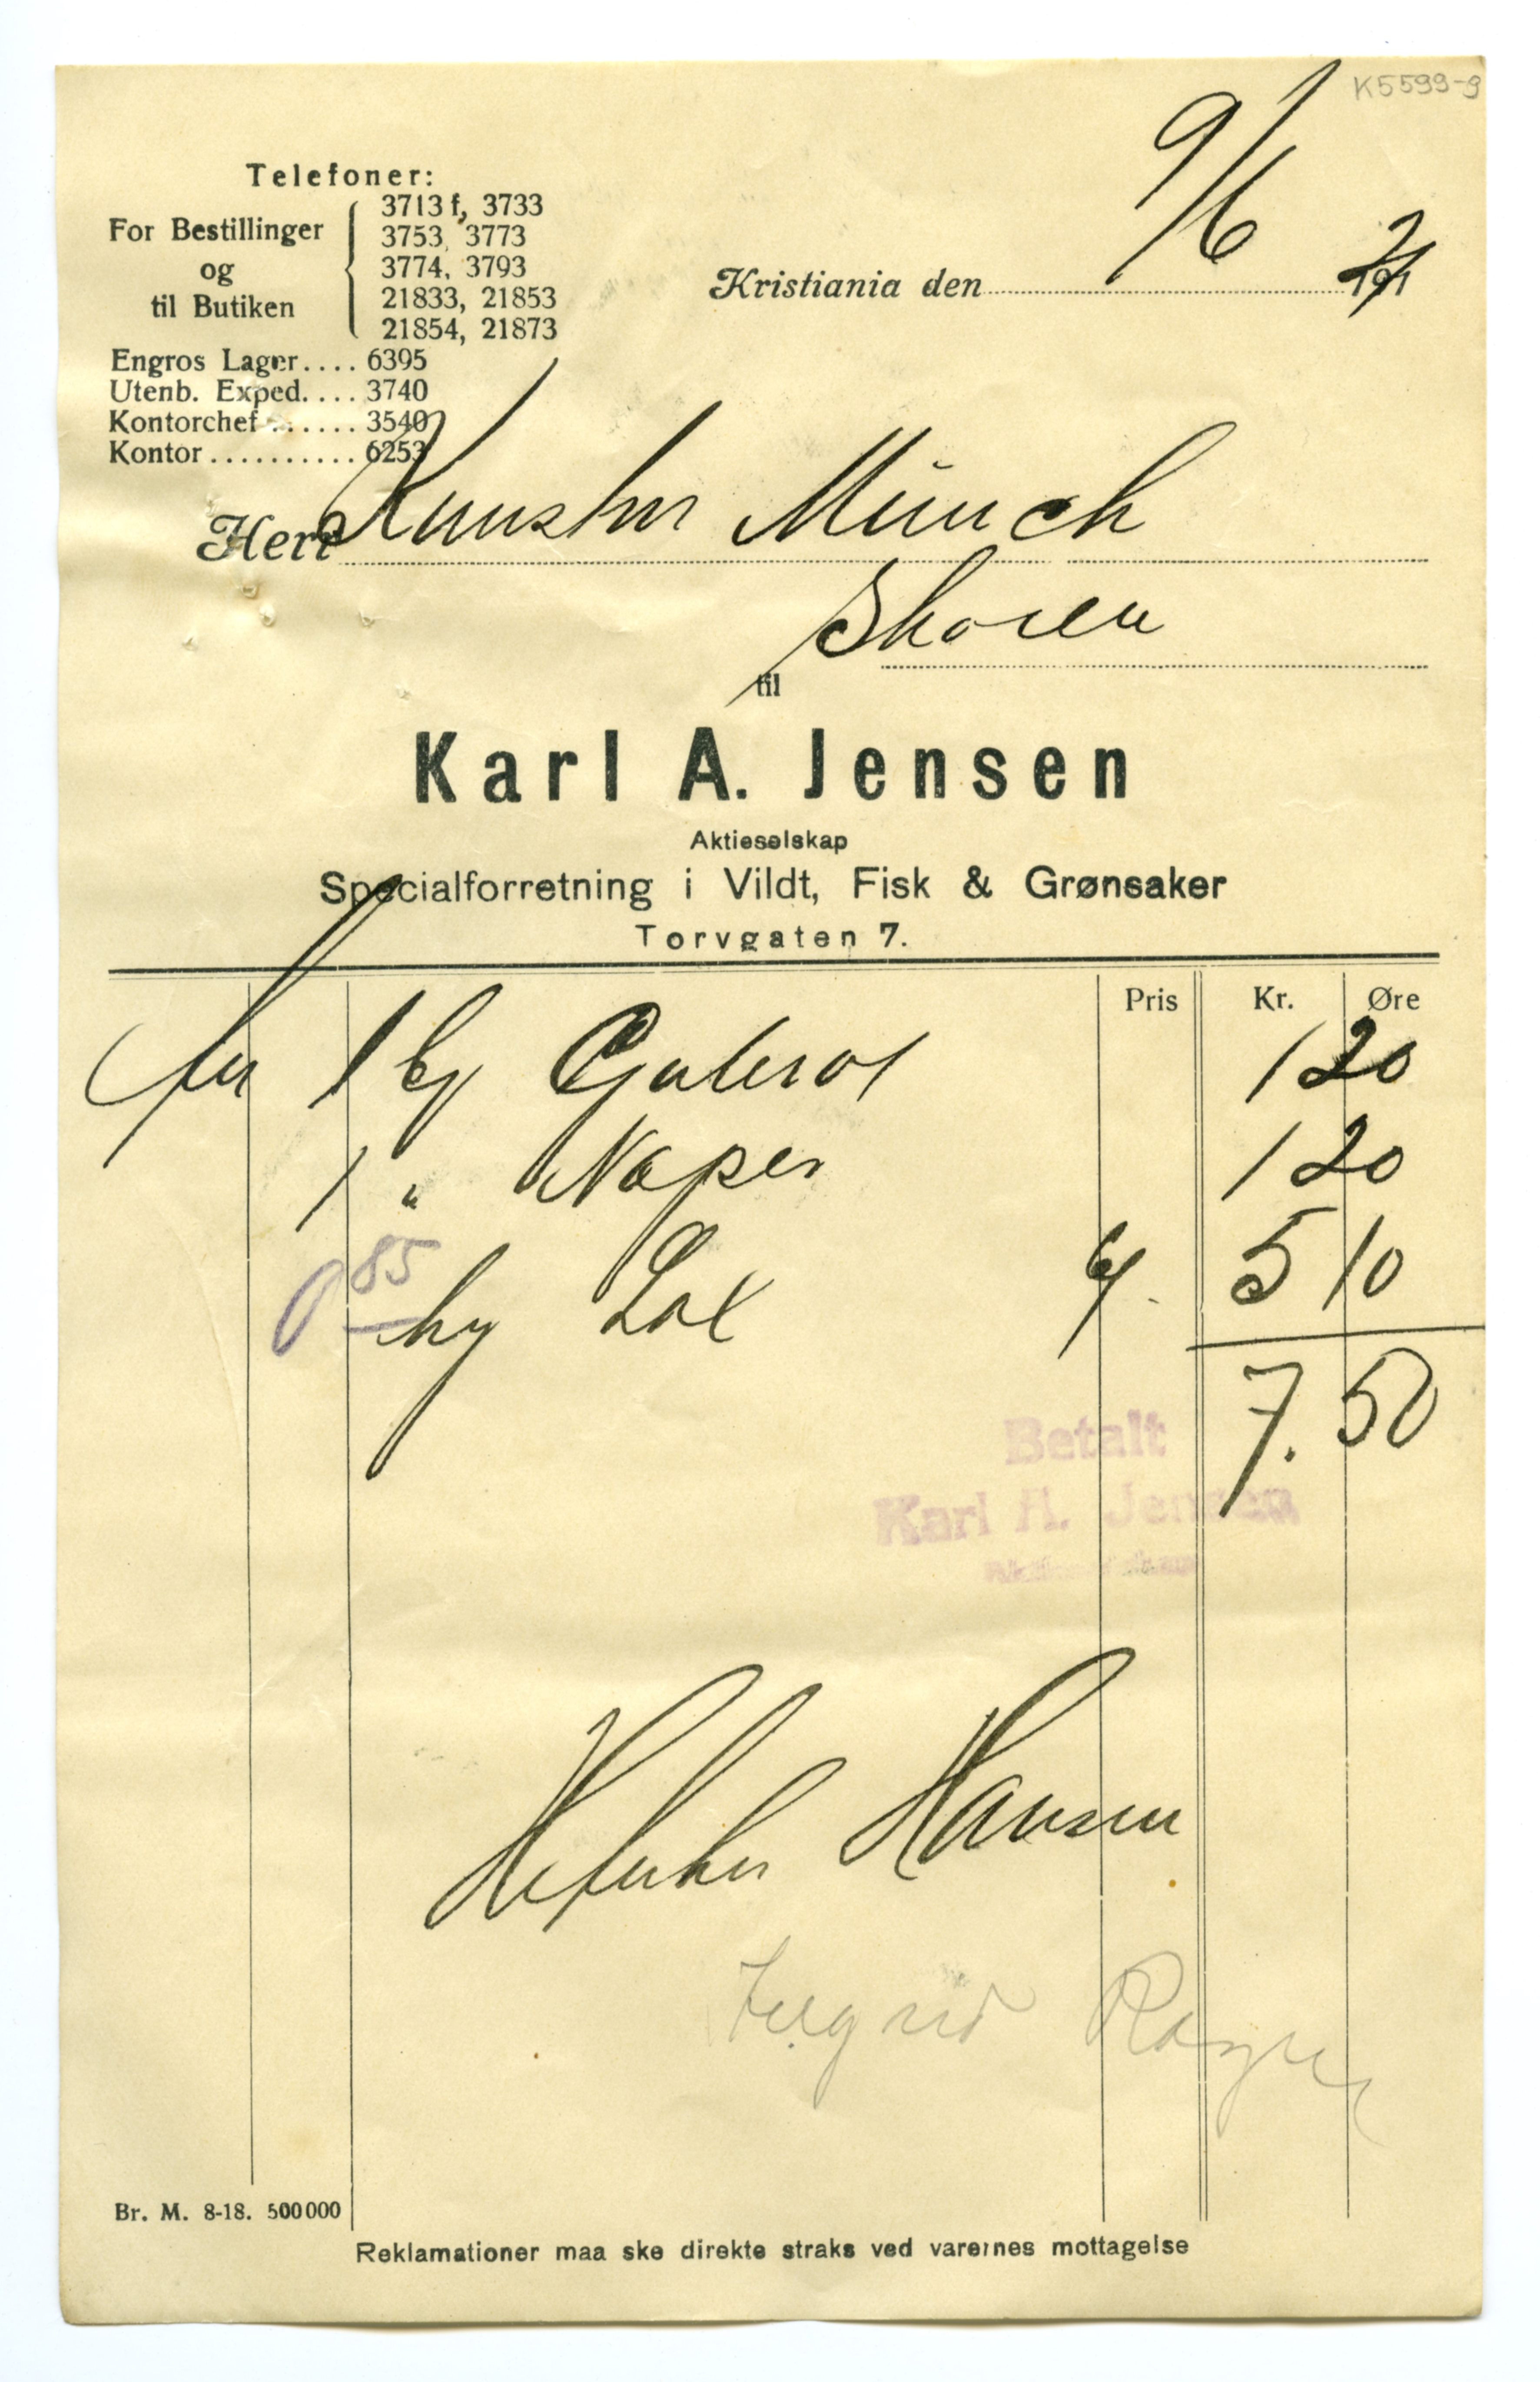 K5599-9
9/6 21
Telefoner:
For Bestillinger og til Butiken
3713 f, 3733
3753, 3773
3774, 3793
21833, 21853
21854, 21873
Kristiania den 191
Engros Lager.... 6395
Utenb. Exped.... 3740
Kontorchef ...... 3540
Kontor .......... 6253
Herr Kunstner Münch
Skøien
til
Karl A. Jensen
Aktieselskap
Specialforretning i Vildt, Fisk & Grønsaker
Torvgaten 7.
Pris Kr. Øre
1 Gulerot 1 20
1 " Neper 1 20
0 85 kg Lax 6/. 5 10
7. 50
Betalt
Karl A. Jensen
Hansen
Ingrid
Br. M. 8-18. 500000
Reklamationer maa ske direkte straks ved varernes mottagelse